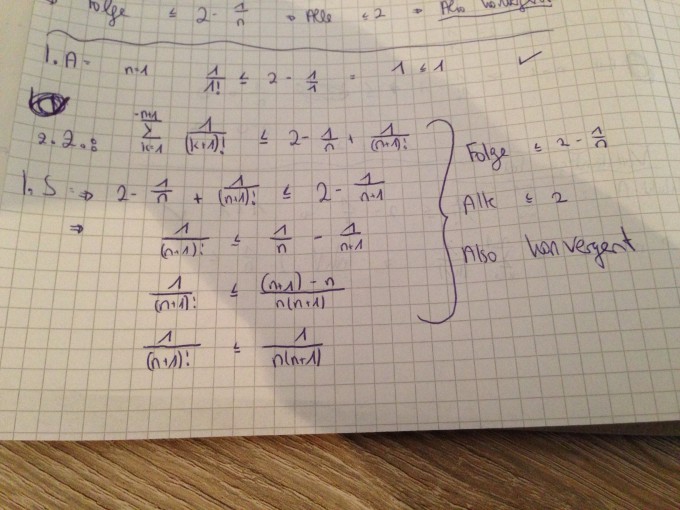 Folge ≤ 2 - 1/n ⇒ Alle ≤ 2 ⇒ Also konvergent
I.A. n=1 1/1! ≤ 2 - 1/1 = 1 ≤ 1 ✓
z.z.: ∑_{k=1}^{n+1} 1/(k+1)! ≤ 2 - 1/n + 1/(n+1)!
I.S ⇒ 2 - 1/n + 1/(n+1)! ≤ 2 - 1/(n+1)
⇒ 1/(n+1)! ≤ 1/n - 1/(n+1)
1/(n+1)! ≤ ((n+1) - n)/(n(n+1))
1/(n+1)! ≤ 1/(n(n+1))
Folge ≤ 2 - 1/n
Alle ≤ 2
Also konvergent